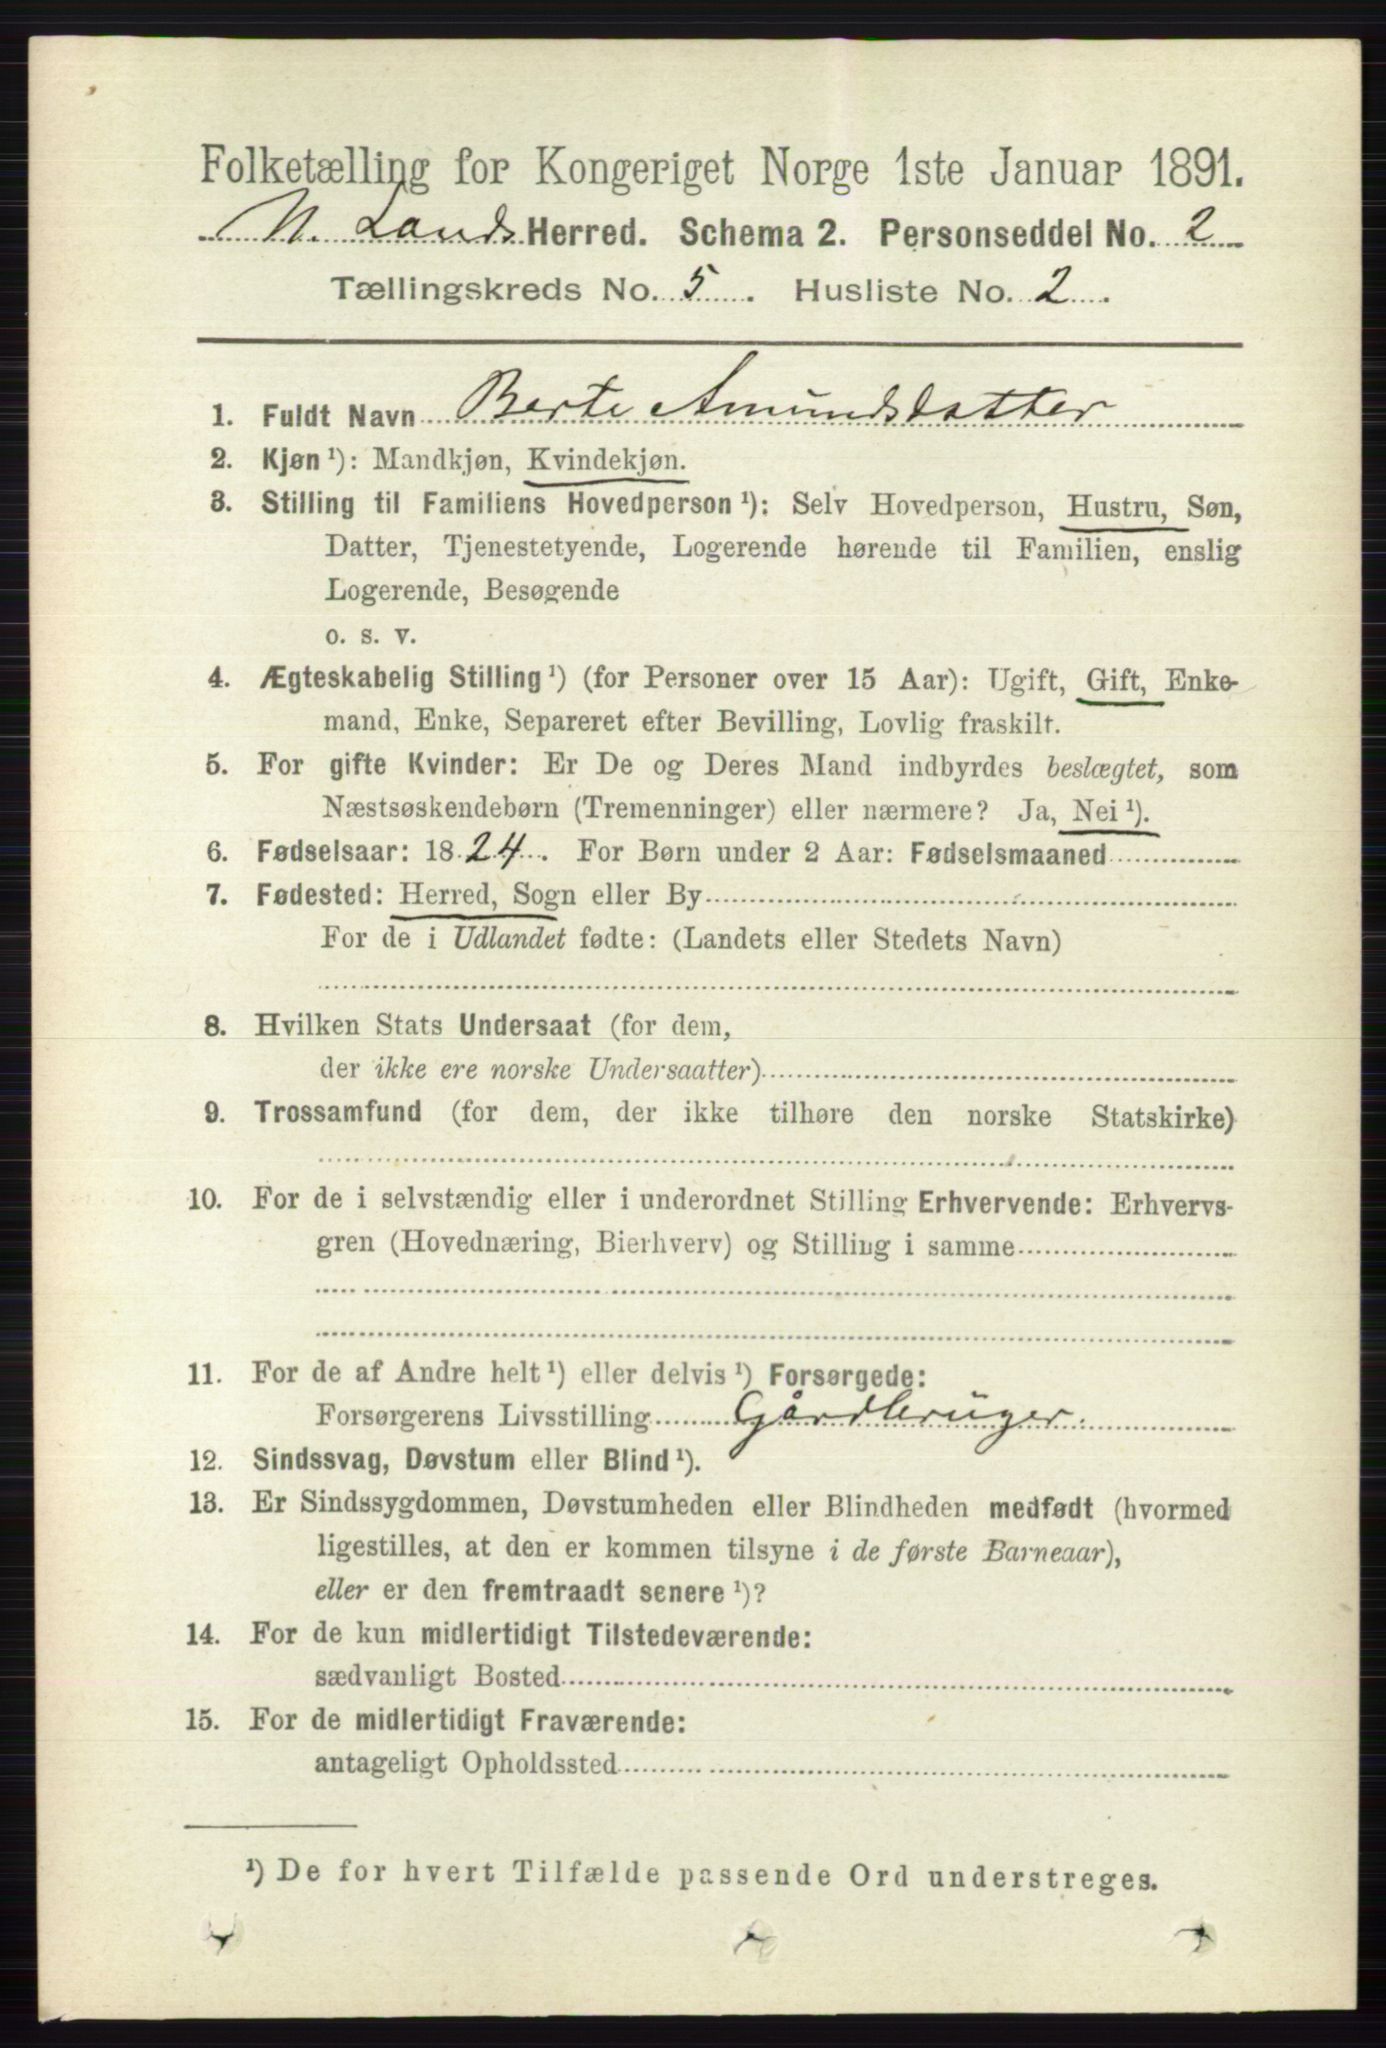 Folketælling for Kongeriget Norge 1ste Januar 1891.
N. Lands Herred. Schema 2. Personseddel No. 2
Tællingskreds No. 5. Husliste No. 2.
1. Fuldt Navn Berte Amundsdatter
2. Kjøn ¹): Mandkjøn, Kvindekjøn.
3. Stilling til Familiens Hovedperson ¹): Selv Hovedperson, Hustru, Søn,
Datter, Tjenestetyende, Logerende hørende til Familien, enslig
Logerende, Besøgende
o. s. v.
4. Ægteskabelig Stilling ¹) (for Personer over 15 Aar): Ugift, Gift, Enke-
mand, Enke, Separeret efter Bevilling, Lovlig fraskilt.
5. For gifte Kvinder: Er De og Deres Mand indbyrdes beslægtet, som
Næstsøskendebørn (Tremenninger) eller nærmere? Ja, Nei ¹).
6. Fødselsaar: 1824. For Børn under 2 Aar: Fødselsmaaned
7. Fødested: Herred, Sogn eller By
For de i Udlandet fødte: (Landets eller Stedets Navn)
8. Hvilken Stats Undersaat (for dem,
der ikke ere norske Undersaatter)
9. Trossamfund (for dem, der ikke tilhøre den norske Statskirke)
10. For de i selvstændig eller i underordnet Stilling Erhvervende: Erhvervs-
gren (Hovednæring, Bierhverv) og Stilling i samme
11. For de af Andre helt ¹) eller delvis ¹) Forsørgede:
Forsørgerens Livsstilling Gårdbruger.
12. Sindssvag, Døvstum eller Blind ¹).
13. Er Sindssygdommen, Døvstumheden eller Blindheden medfødt (hvormed
ligestilles, at den er kommen tilsyne i de første Barneaar),
eller er den fremtraadt senere ¹)?
14. For de kun midlertidigt Tilstedeværende:
sædvanligt Bosted
15. For de midlertidigt Fraværende:
antageligt Opholdssted
¹) De for hvert Tilfælde passende Ord understreges.